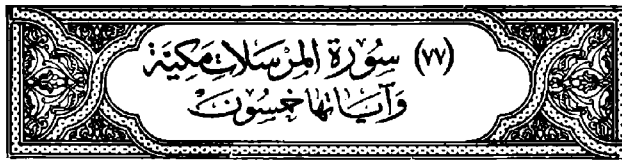 (٧٧) سُورَة المرْسَلات مَكيَّة
وَآيَاتها خمسُونَ